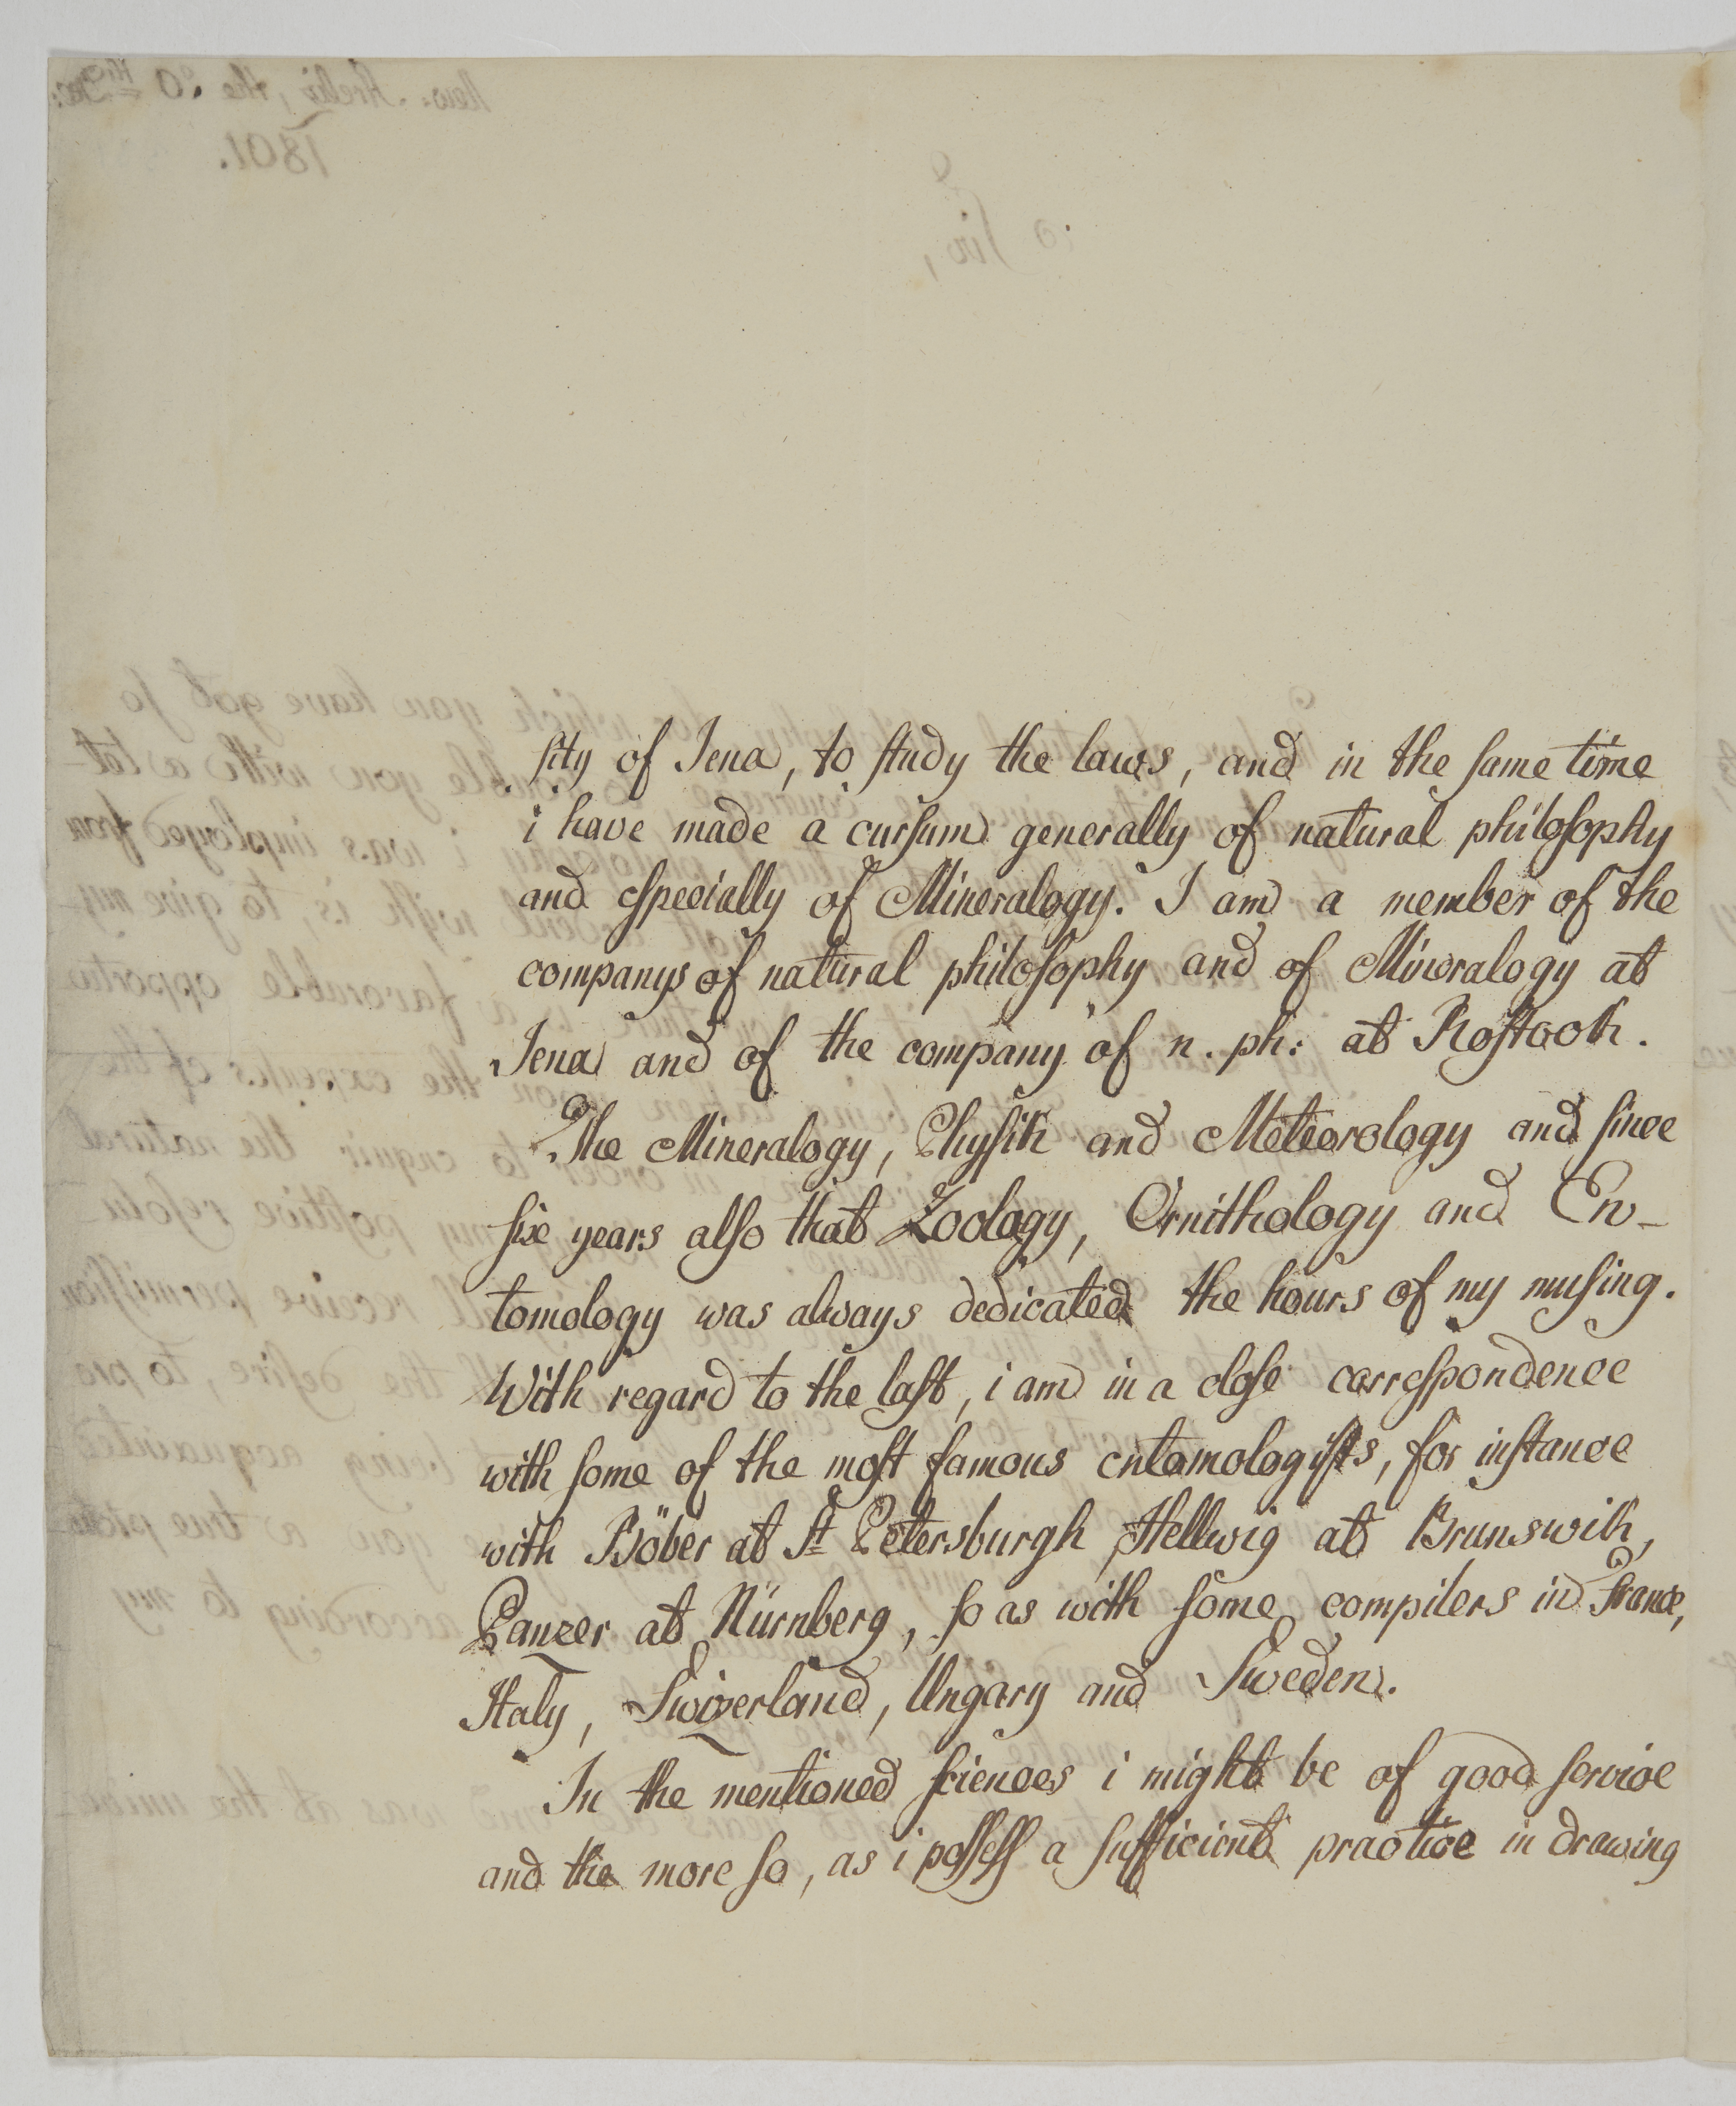 sity of Jena, to study the laws, and in the same time
i have made a cursum generally of natural philosophy
and especially of Mineralogy. I am a member of the
companys of natural philosophy and of Mineralogy at
Jena and of the company of n. ph: at Rostock.
The Mineralogy, Physik and Meteorology and since
six years also that Zoology, Ornithology and En-
tomology was always dedicated the hours of my musing.
With regard to the last, i am in a close correspondence
with some of the most famous entomologists, for instance
with Böber at St Petersburgh, Hellwig at Brunswik,
Panzer at Nürnberg, so as with some compilers in France,
Italy, Swizerland, Ungary and Sweden.
In the mentioned sciences i might be of good service
and the more so, as i possess a sufficient practice in drawing